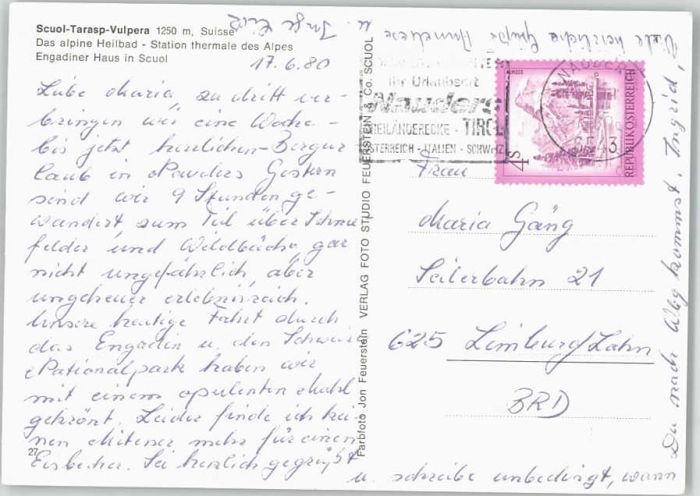 Scuol-Tarasp-Vulpera 1250 m, Suisse
Das alpine Heilbad - Station thermale des Alpes
Engadiner Haus in Scuol
17.6.80
Liebe Maria, zu dritt ver-
bringen wir eine Woche
bis jetzt herrlichen Bergur
laub in Nauders Gestern
sind wir 9 Stunden ge-
wandert zum Teil über Schnee
felder und Wildbäche, gar
nicht ungefährlich, aber
ungeheuer erlebnisreich.
Unsere heutige Fahrt durch
das Engadin u. den Schweizer
Nationalpark haben wir
mit einem opulenten Mahl
gekrönt. Leider finde ich kei-
nen Mitesser mehr für einen
Eisbecher. Sei herzlich gegrüßt
u. schreibe unbedingt, wann
Du nach Wbg kommst. Ingrid,
Viele herzliche Grüße Anneliese
u. Inge
27
Farbfoto Jon Feuerstein VERLAG FOTO STUDIO FEUERSTEIN & Co. SCUOL
Ihr Urlaubsort
Nauders
DREILÄNDERECKE - TIROL
ÖSTERREICH - ITALIEN - SCHWEIZ
NAUDERS
6543
4 S
REPUBLIK ÖSTERREICH
Frau
Maria Gäng
Seilerbahn 21
625 Limburg/Lahn
BRD